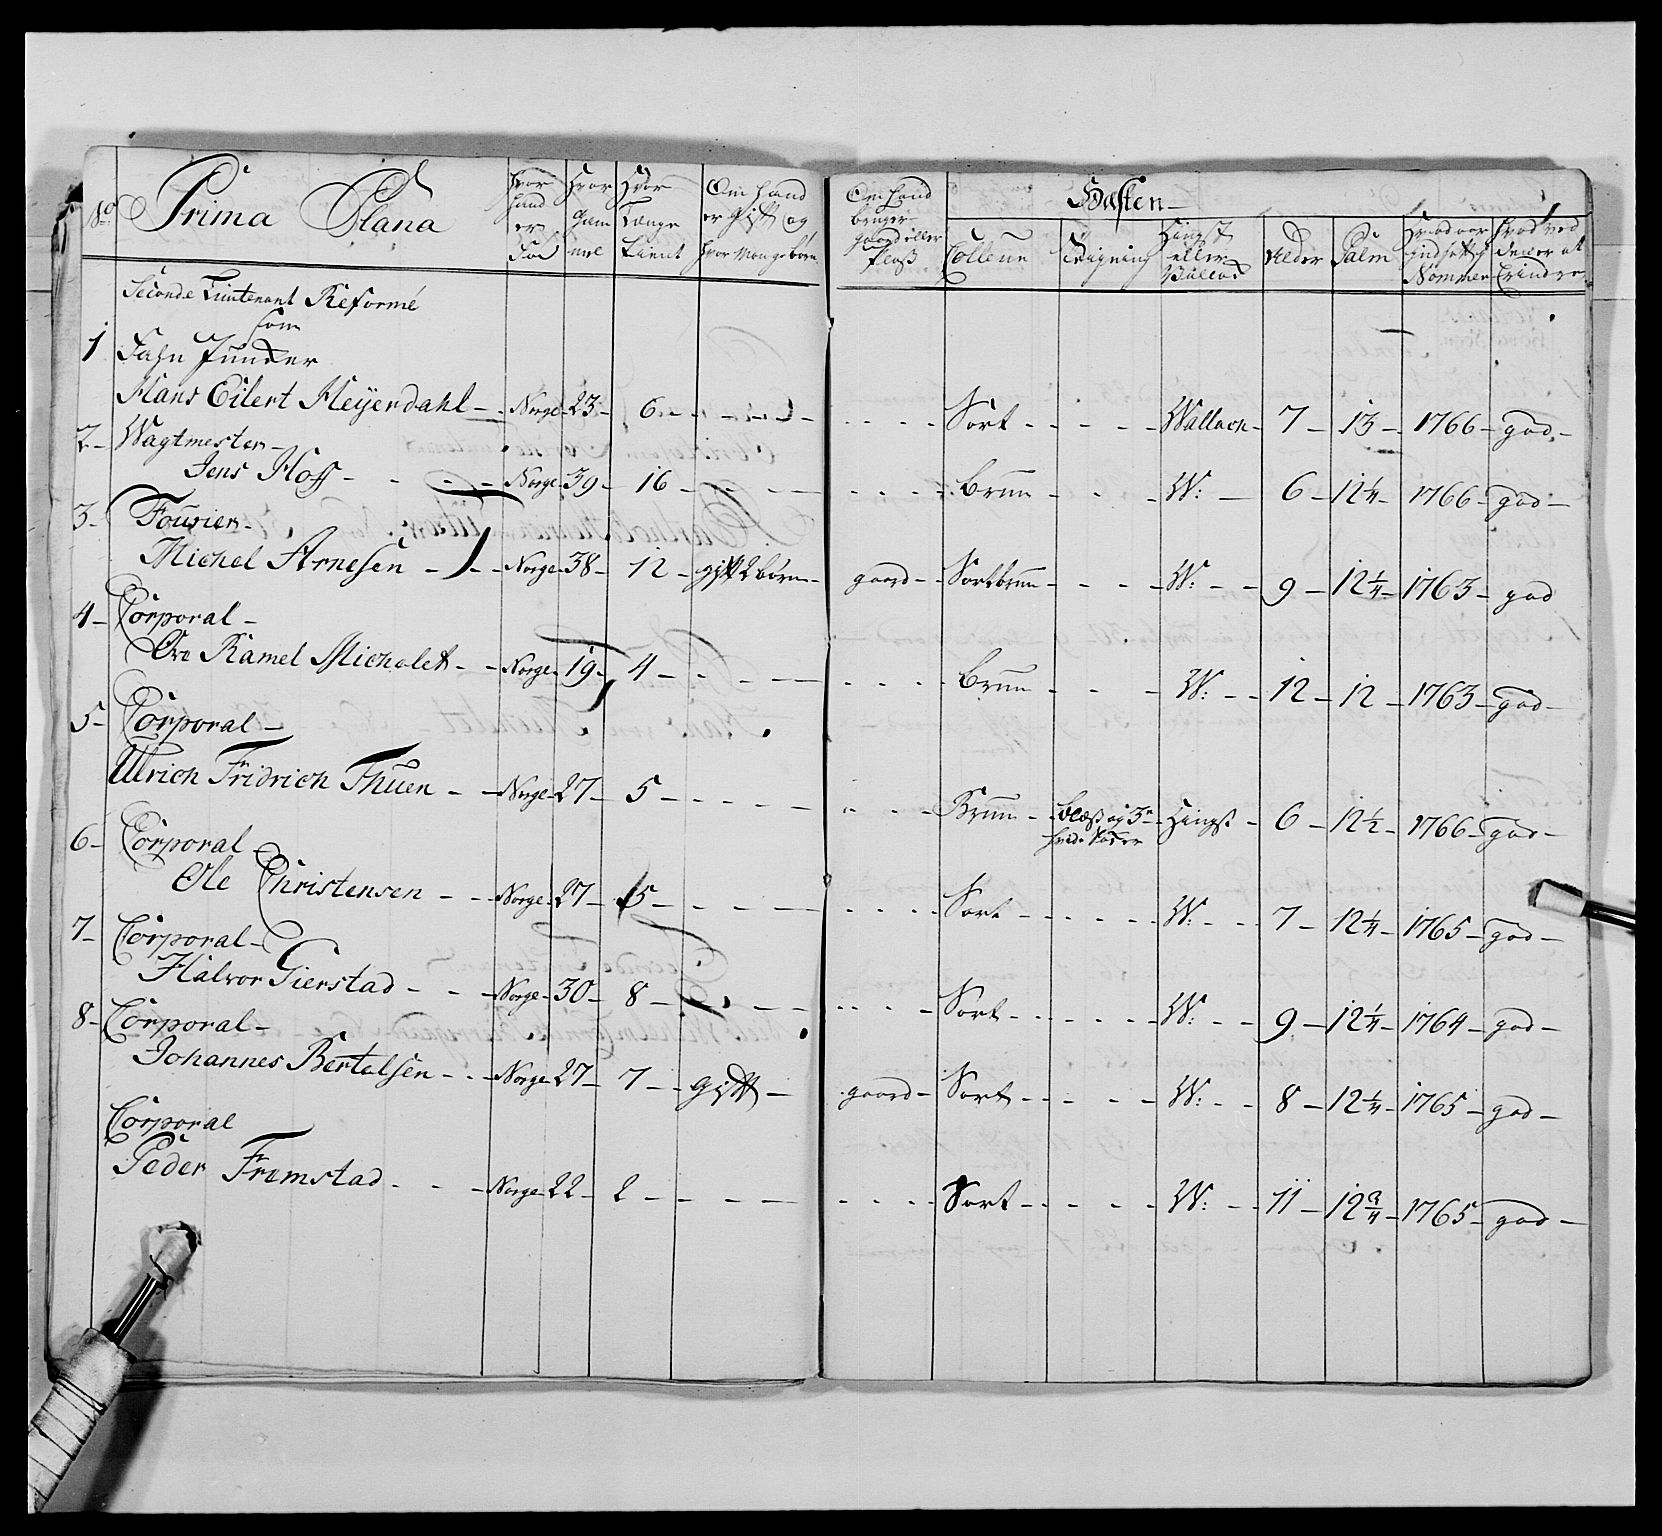 No Prima Plana Hvor hand er Föd Hvor Gam mel Hvor Længe tient Om hand er Gift og hvor Mange börn Om hand bruger gaard eller Plads
Hæsten
Colleur Teigning Hingst eller Vallach Alder Palm Hvad aar indsatt Nommer Hvad ved den er at Erindre
Seconde Lieutenant Reformé
som
1 Fahn Juncker
Hans Eilert Heijerdahl - Norge - 23 - 6 - Sort - Wallach - 7 - 13 - 1766 - god -
2 - Wagtmester -
Jens Hoff - Norge - 39 - 16 - brun - W: - 6 - 12 1/4 - 1766 - god -
3 - Fourier -
Michel Arnesen - Norge - 38 - 12 - gift 2 börn - gaard - Sortbrun - W: - 9 - 12 1/4 - 1763 - god
4 - Corporal -
Ove Ramel Michelet - Norge - 19 - 4 - brun - W: - 12 - 12 - 1763 - god -
5 - Corporal -
Ulrich Fridrich Thuen - Norge - 27 - 5 - Brun - blæs og 3de hvide Föder - Hingst - 6 - 12 1/2 - 1766 - god -
6 - Corporal -
Ole Christensen - Norge - 27 - 5 - Sort - W: - 7 - 12 1/4 - 1765 - god -
7 - Corporal -
Halvor Gierstad - Norge - 30 - 8 - Sort - W: - 9 - 12 1/4 - 1764 - god -
8 - Corporal -
Johannes Bertelsen - Norge - 27 - 7 - Gift - gaard - Sort - W: - 8 - 12 1/4 - 1765 - god -
Corporal
Peder Fremstad - Norge - 22 - 2 - Sort - W: - 11 - 12 3/4 - 1765 - god -